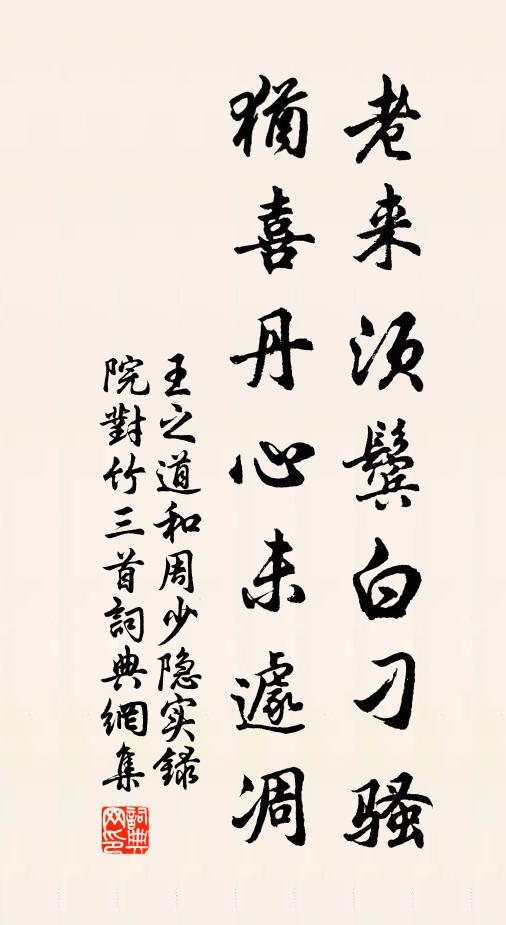 老来须鬓白刁骚
犹喜丹心未遽凋
王之道和周少隐实録
院對竹三首詞典網集
詞典网印